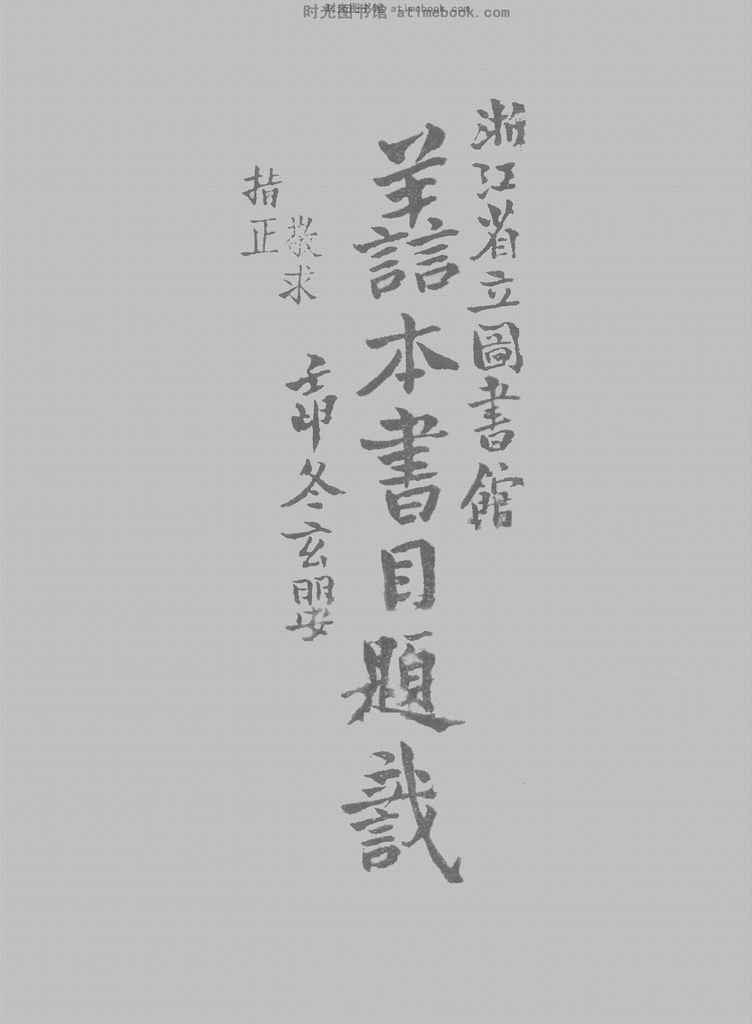 时光图书馆 atimebook.com
浙江省立圖書館
譱本書目題識
壬卯冬玄嬰
敬求
指正